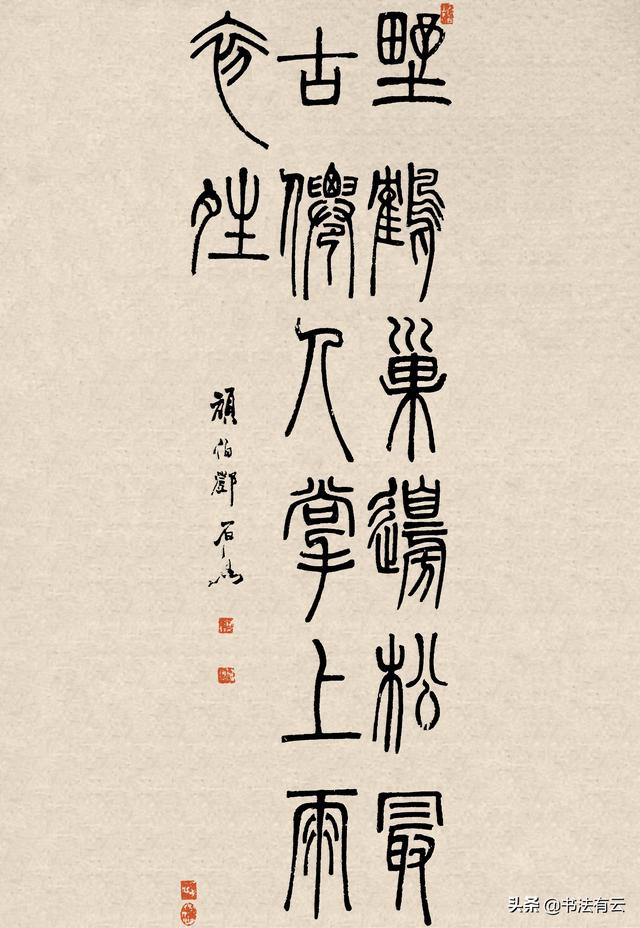 野鶴巢邊松最
古僊人掌上雨
初夝
頑伯鄧石如
头条 @书法有云